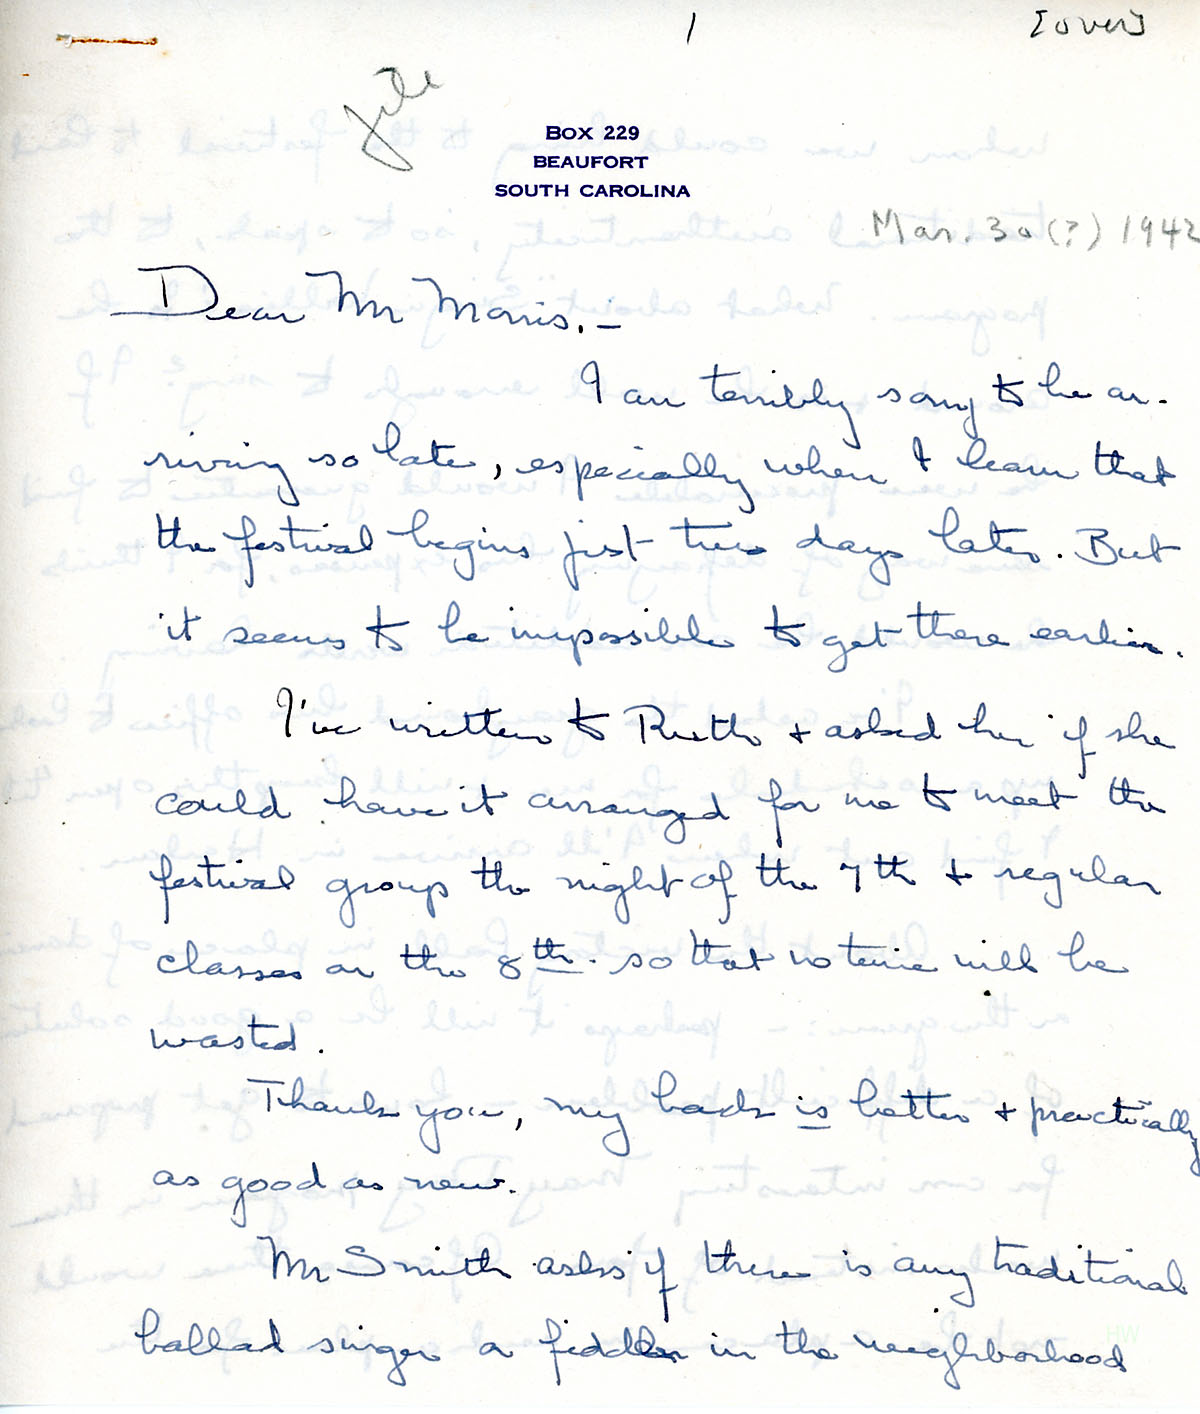 1
[over]
file
BOX 229
BEAUFORT
SOUTH CAROLINA
Mar. 30 (?) 1942
Dear Mr Morris,–
I am terribly sorry to be ar-
riving so late, especially when I learn that
the festival begins just two days later. But
it seems to be impossible to get there earlier.
I've written to Ruth + asked her if she
could have it arranged for me to meet the
festival group the night of the 7th + regular
classes on the 8th. so that no time will be
wasted.
Thank you, my back is better + practically
as good as new.
Mr Smith asks if there is any traditional
ballad singer or fiddler in the neighborhood
HW